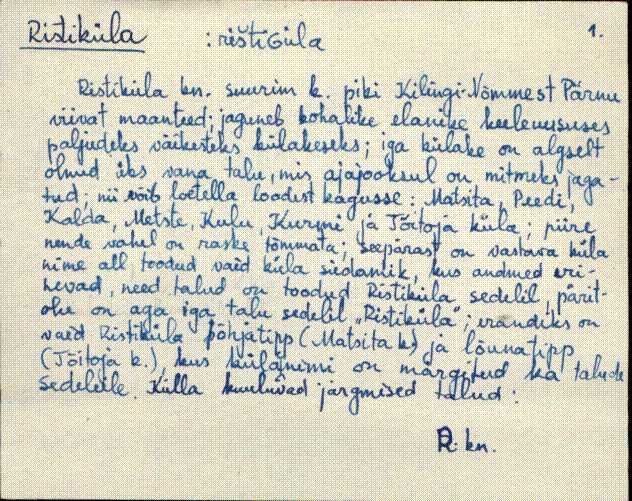 Ristiküla : rištiGüla 1.
Ristiküla kn. suurim k. piki Kilingi-Nõmmest Pärnu
viivat maanteed; jaguneb kohalike elanike keelemuses
paljudeks väikesteks külakeseks; iga külake on algselt
olnud üks vana talu, mis ajajooksul on mitmeks jaga-
tud; nii võib loetella loodest kagusse: Matsita, Peedi,
Kalda, Metste, Kulu, Kurmi ja Tõitoja küla; piire
nende vahel on raske tõmmata; seepärast on vastava küla
nime all toodud vaid küla südamik, kus andmed eri-
nevad, need talud on toodud Ristiküla sedelil, pärit-
olu on aga iga talu sedelil „Ristiküla"; erandiks on
vaid Ristiküla põhjatipp (Matsita k) ja lõunatipp
(Tõitoja k.), kus külanimi on märgitud ka talude
sedelile. Külla kuuluvad järgmised talud:
R. kn.